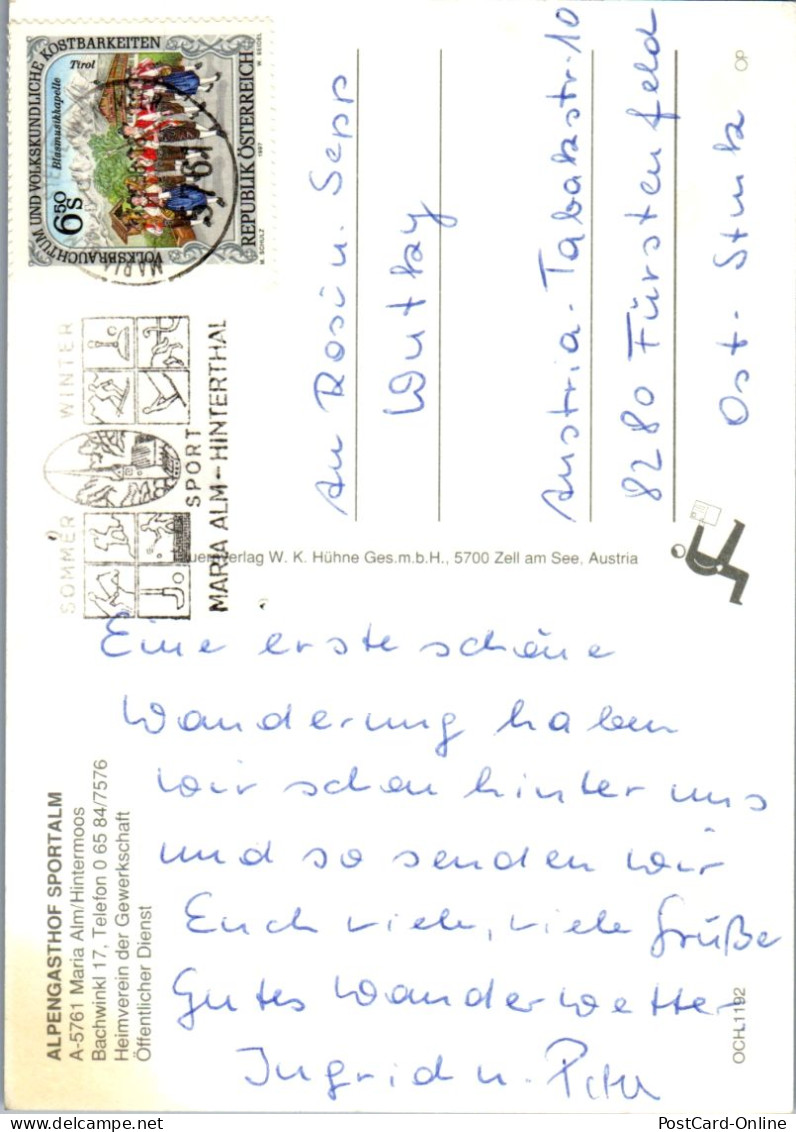 VOLKSBRAUCHTUM UND VOLKSKUNDLICHE KOSTBARKEITEN
Blasmusikkapelle Tirol
6 50 S
REPUBLIK ÖSTERREICH
M. SCHULZ 1997 W. SEIDEL
MARIA
5761
SOMMER WINTER
SPORT
MARIA ALM - HINTERTHAL
An Rosi u. Sepp
Wutky
Austria - Tabakstr. 10
8280 Fürstenfeld
Ost-Stmk
OP
Verlag W. K. Hühne Ges.m.b.H., 5700 Zell am See, Austria
Eine erste schöne
Wanderung haben
wir schon hinter uns
und so senden wir
Euch viele, viele Grüße
Gutes Wanderwetter
Ingrid u. Peter
ALPENGASTHOF SPORTALM
A-5761 Maria Alm/Hintermoos
Bachwinkl 17, Telefon 0 65 84/7576
Heimverein der Gewerkschaft
Öffentlicher Dienst
OCH.1192
PostCard-Online